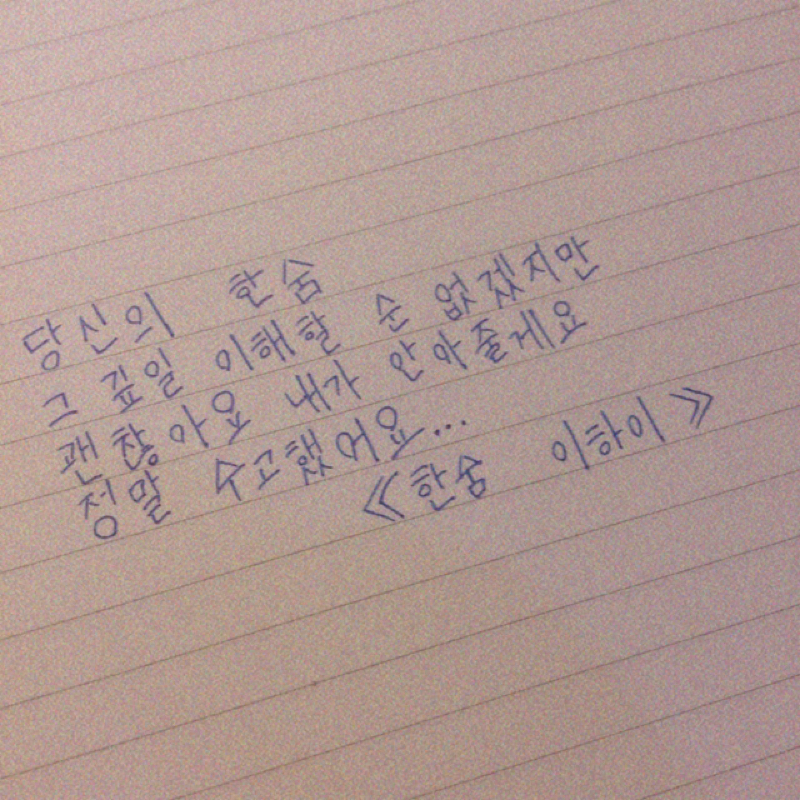 당신의 한숨
그 깊일 이해할 순 없겠지만
괜찮아요 내가 안아줄게요
정말 수고했어요...
《한숨 이하이》